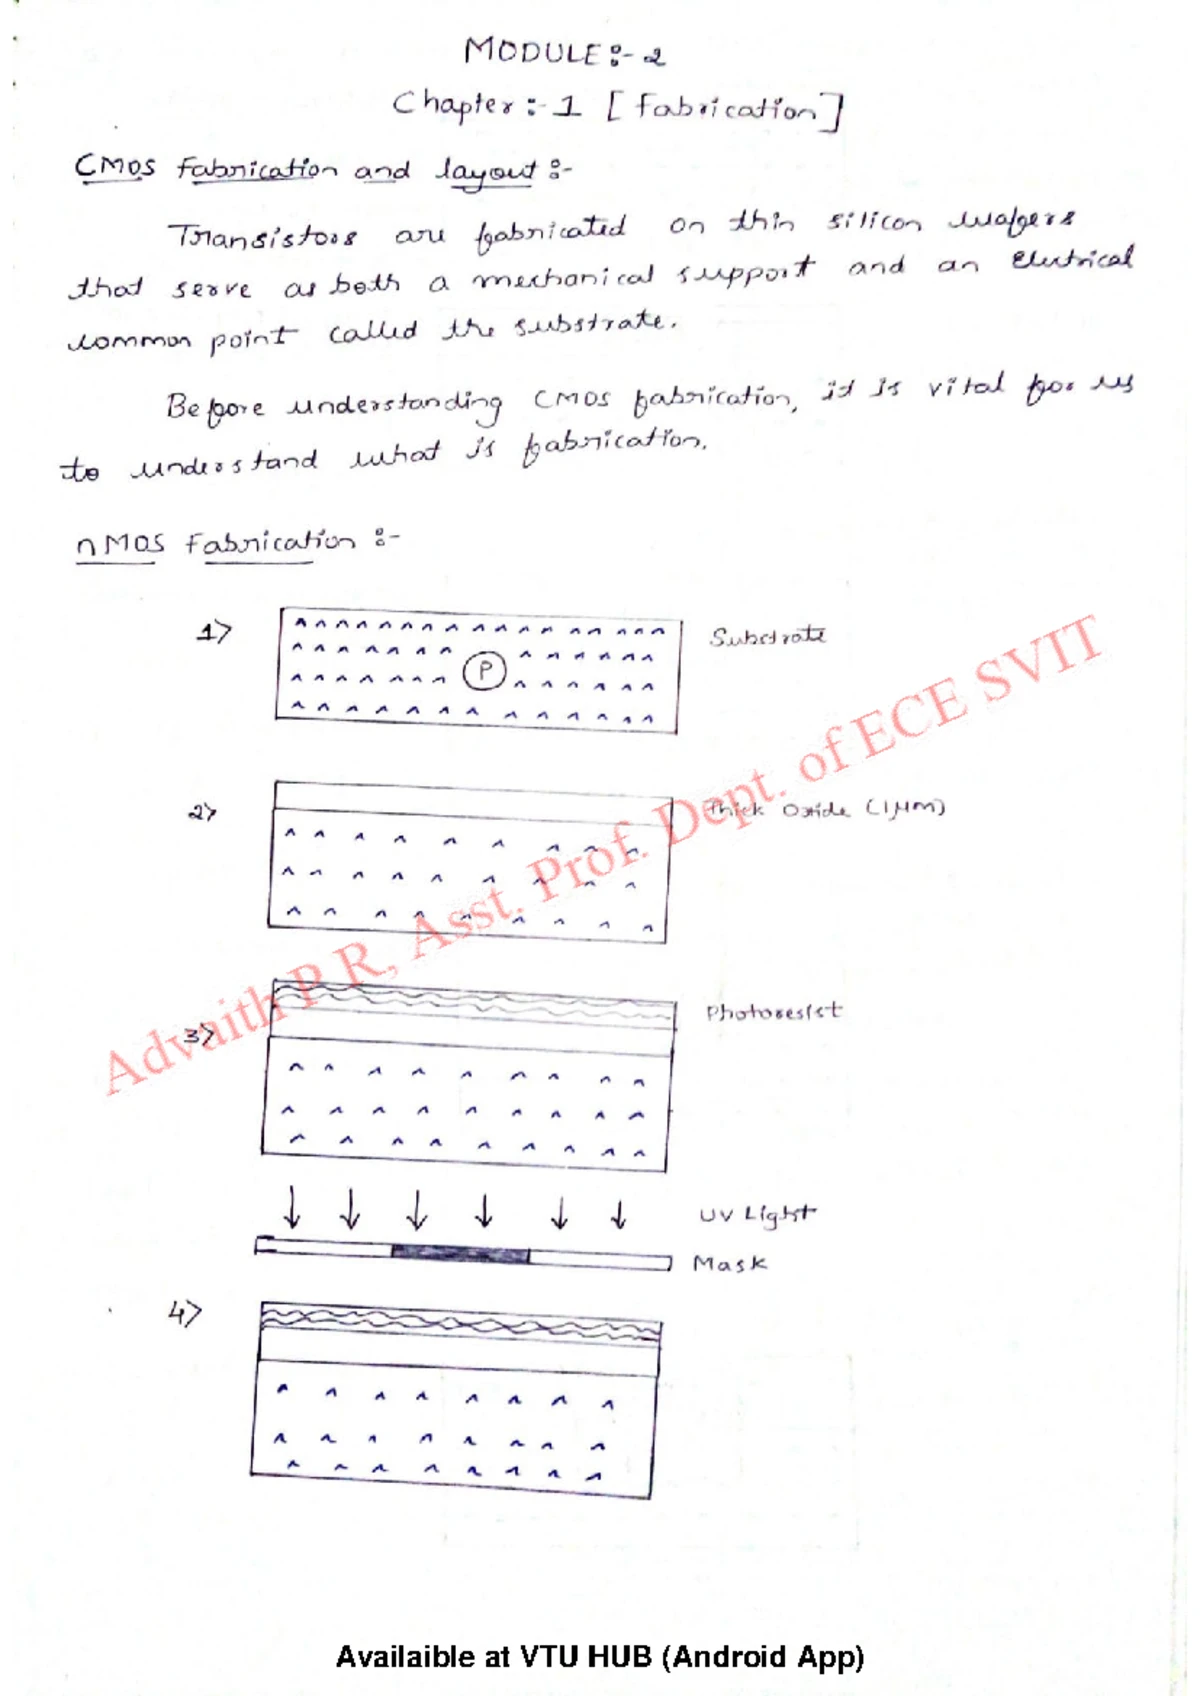 MODULE:- 2
Chapter:- 1 [Fabrication]
CMOS Fabrication and layout:-
Transistors are fabricated on thin silicon wafers
that serve as both a mechanical support and an Electrical
common point called the substrate.
Before understanding CMOS fabrication, it is vital for us
to understand what is fabrication.
nMOS Fabrication:-
1> P Substrate
2> Thick Oxide (1μm)
3> Photoresist
UV Light
Mask
4>
Advaith P R, Asst. Prof. Dept. of ECE SVIT
Availaible at VTU HUB (Android App)